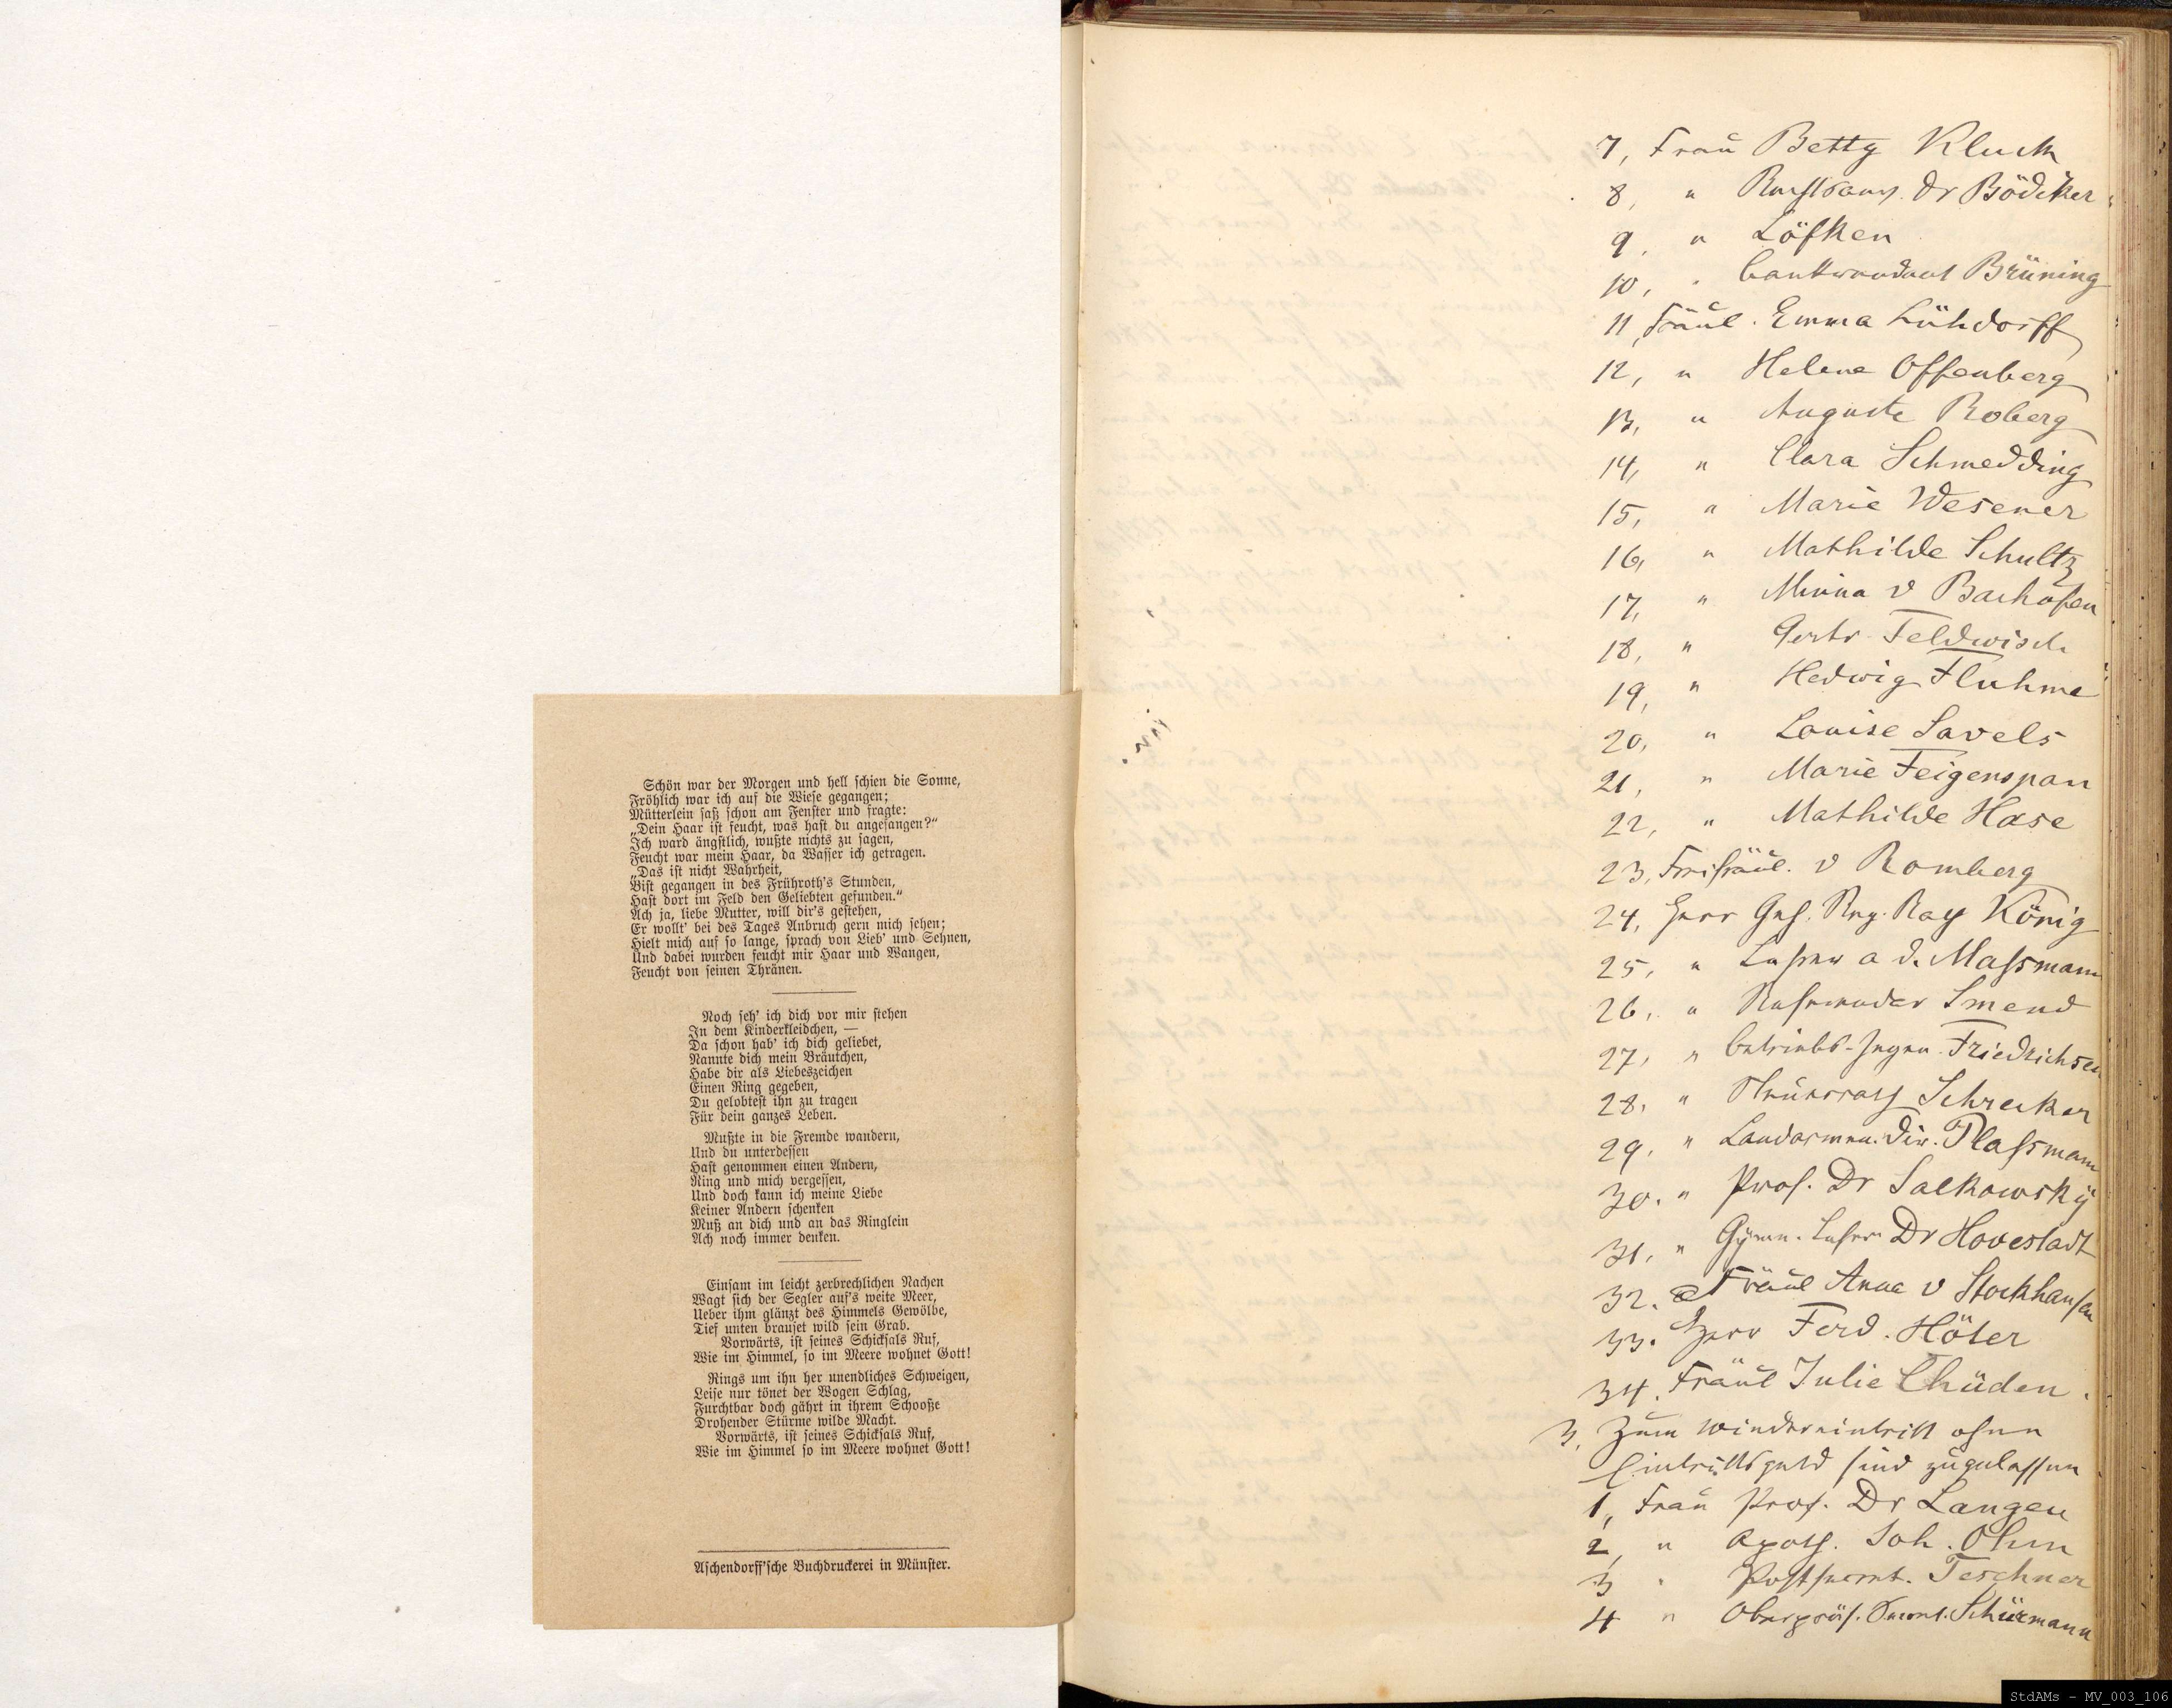 Schön war der Morgen und hell schien die Sonne,
Fröhlich war ich auf die Wiese gegangen;
Mütterlein saß schon am Fenster und fragte:
„Dein Haar ist feucht, was hast du angefangen?“
Ich ward ängstlich, wußte nichts zu sagen,
Feucht war mein Haar, da Wasser ich getragen.
„Das ist nicht Wahrheit,
Bist gegangen in des Frühroth's Stunden,
Hast dort im Feld den Geliebten gefunden.“
Ach ja, liebe Mutter, will dir's gestehen,
Er wollt' bei des Tages Anbruch gern mich sehen;
Hielt mich auf so lange, sprach von Lieb' und Sehnen,
Und dabei wurden feucht mir Haar und Wangen,
Feucht von seinen Thränen.
Noch seh' ich dich vor mir stehen
In dem Kinderkleidchen, —
Da schon hab' ich dich geliebet,
Nannte dich mein Bräutchen,
Habe dir als Liebeszeichen
Einen Ring gegeben,
Du gelobtest ihn zu tragen
Für dein ganzes Leben.
Mußte in die Fremde wandern,
Und du unterdessen
Hast genommen einen Andern,
Ring und mich vergessen,
Und doch kann ich meine Liebe
Keiner Andern schenken
Muß an dich und an das Ringlein
Ach noch immer denken.
Einsam im leicht zerbrechlichen Nachen
Wagt sich der Segler auf's weite Meer,
Ueber ihm glänzt des Himmels Gewölbe,
Tief unten brauset wild sein Grab.
Vorwärts, ist seines Schicksals Ruf,
Wie im Himmel, so im Meere wohnet Gott!
Rings um ihn her unendliches Schweigen,
Leise nur tönet der Wogen Schlag,
Furchtbar doch gährt in ihrem Schooße
Drohender Stürme wilde Macht.
Vorwärts, ist seines Schicksals Ruf,
Wie im Himmel so im Meere wohnet Gott!
Aschendorff'sche Buchdruckerei in Münster.
7, Frau Betty Kluck
8, " Dr Bödeker
9, " Löfken
10, " Brüning
11, Fräul. Emma Lühdorff
12, " Helene Offenberg
13, " Auguste Roberg
14, " Clara Schmedding
15, " Marie Wesener
16, " Mathilde Schultz
17, " Minna v Bachofen
18, " Gertr Feldwisch
19, " Hedwig Fluhme
20, " Louise Savels
21, " Marie Feigenspan
22, " Mathilde Hase
23, Freifräul. v Romberg
24, Herr Geh. Reg. Rath König
25, " Lehrer a d. Maſsmann
26, " Referendar Smend
27, " Betriebs-Ingen. Friedrichsen
28, " Steuerrath Schrecker
29, " Landarmen. Dir. Plaſsmann
30. " Prof. Dr Salkowsky
31, " Gymn. Lehrer Dr Hovestadt
32. Fräul Anna v Stockhausen
33. Herr Ferd. Höter
34. Fräul Julie Thüden.
3. Zum Wiedereintritt ohne
Eintrittsgeld sind zugelassen
1, Frau Prof. Dr Langen
2, " Apoth. Joh. Ohm
3 " Postsecret. Teschner
4 " Oberpräs. Secret. Schürmann
StdAMs - MV_003_106